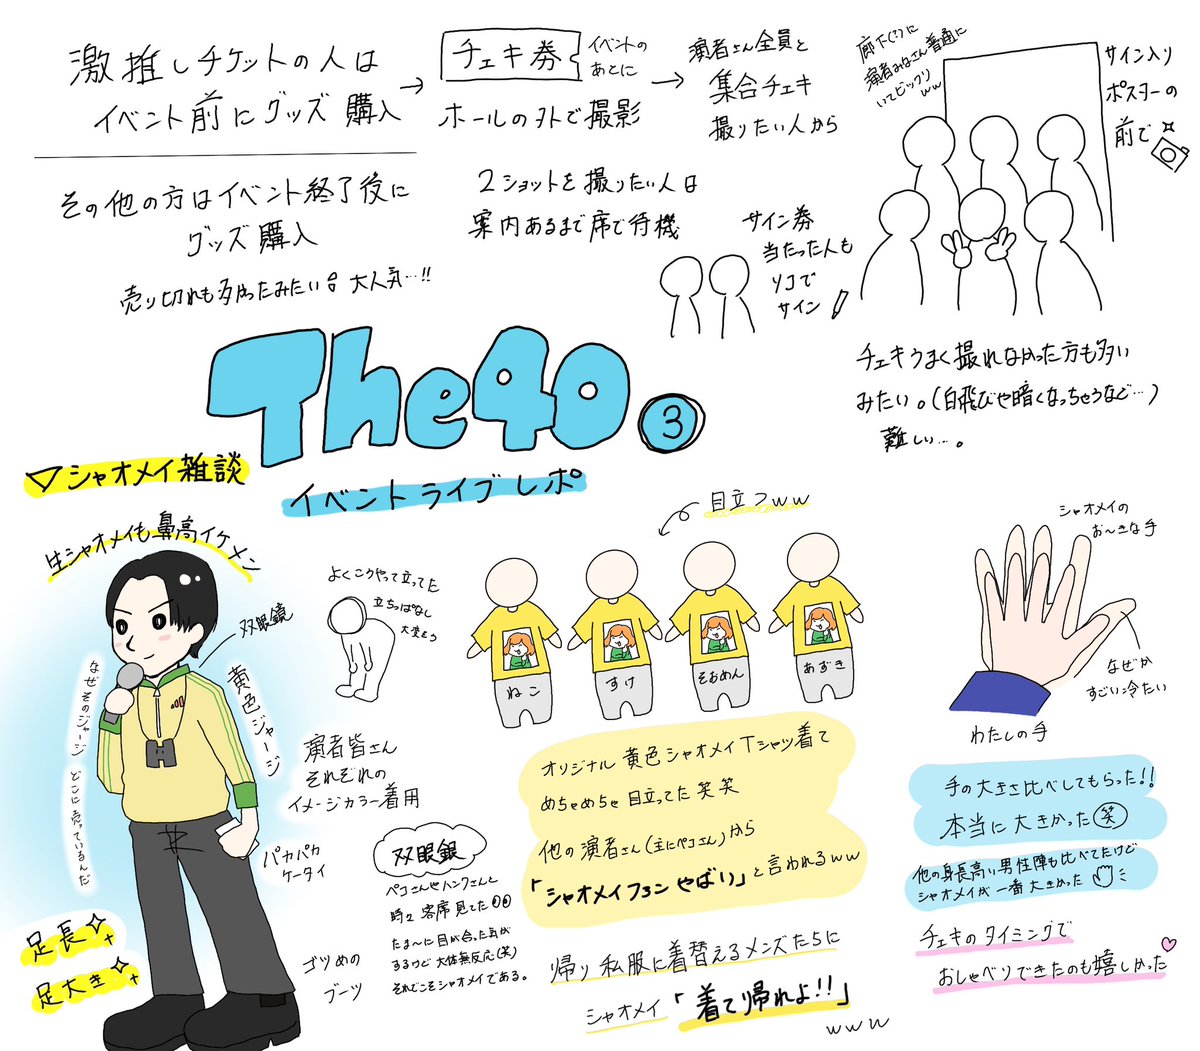 激推しチケットの人は
イベント前にグッズ購入
→
チェキ券
イベントの
あとに
ホールの外で撮影
→
演者さん全員と
集合チェキ
撮りたい人から
廊下ぐりに
演者みなさん普通に
いてビックリ
ww
サイン入り
ポスターの
前で
その他の方はイベント終了後に
グッズ購入
売り切れも多かったみたい。大人気…!!
2ショットを撮りたい人は
案内あるまで席で待機
サイン券
当たった人も
ソコで
サイン
チェキうまく撮れなかった方も多い
みたい。(白飛びや暗くなっちゃうなど…)
難しい…。
The40
③
イベントライブレポ
▽シャオメイ雑談
生シャオメイも鼻高イケメン
双眼鏡
黄色ジャージ
なぜそのジャージ
どこに売っているんだ
パカパカ
ケータイ
ゴツめの
ブーツ
足長
足大き
よくこうやって立ってた
立ちっぱなし
大変そう
演者皆さん
それぞれの
イメージカラー着用
双眼鏡
ペコさんやハンクさんと
時々客席見てた
たま〜に目が合った気が
するけど大体無反応(笑)
それでこそシャオメイである。
目立つww
ねこ
すけ
そおめん
あずき
オリジナル黄色シャオメイTシャツ着て
めちゃめちゃ目立ってた笑笑
他の演者さん(主にペコさん)から
「シャオメイフ3ンやばい」と言われるww
帰り私服に着替えるメンズたちに
シャオメイ「着て帰れよ!!」
www
シャオメイの
お〜きな手
なぜか
すごい冷たい
わたしの手
手の大きさ比べしてもらった!!
本当に大きかった㊗
他の身長高い男性陣も比べてたけど
シャオメイが一番大きかった
チェキのタイミングで
おしゃべりできたのも嬉しかった